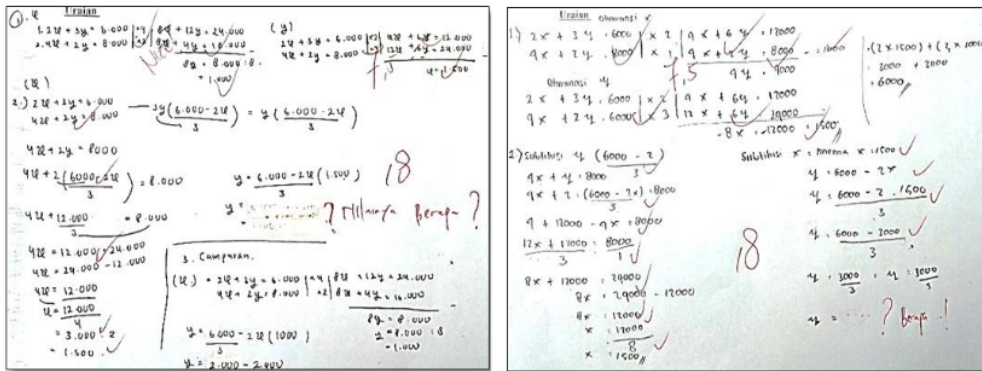 Uraian
1. 2x + 3y = 6.000 | x4 | 8x + 12y = 24.000
2. 4x + 2y = 8.000 | x2 | 8x + 4y = 16.000
8y = 8.000 : 8
= 1.000
(y)
2x + 3y = 6.000 | x2 | 4x + 6y = 12.000
4x + 2y = 8.000 | x3 | 12x + 6y = 24.000
x = 1.500
7,5
(x)
2.) 2x + 3y = 6.000
4x + 2y = 8.000
3y (6.000 - 2x) = y (6.000 - 2x)
3 3
4x + 2y = 8000
4x + 2 (6000 - 2x) = 8.000
3
4x + 12.000 = 8.000
3
4x = 12.000 = 24.000
4x = 24.000 - 12.000
4x = 12.000
x = 12.000
4
= 3.000 : 2
= 1.500
y = 6.000 - 2x (1.500)
3
18
y =
? Nilainya Berapa ?
3. Campuran.
(x) = 2x + 3y = 6.000 | x4 | 8x = 12y = 24.000
4x + 2y = 8.000 | x2 | 8x + 4y = 16.000
8y = 8.000
y = 8.000 : 8
= 1.000
y = 6.000 - 2x (1000)
3
y = 2.000 - 2.000
Uraian
eliminasi x
1) 2x + 3y = 6000 | x 2 | 4x + 6y = 12000
4x + 2y = 8000 | x 1 | 4x + 2y = 8000
4y = 4000
= 1000
7,5
= (2 x 1500) + (3 x 1000)
= 3000 + 3000
= 6000
eliminasi y
2x + 3y = 6000 | x 2 | 4x + 6y = 12000
4x + 2y = 6000 | x 3 | 12x + 6y = 24000
-8x = -12000 = 1500
2) Subtitusi y (6000 - 2)
3
4x + y = 8000
4x + 2 . (6000 - 2x) = 8000
3
4 + 12000 - 4x = 8000
12x + 12000 = 8000
1
8x + 12000 = 24000
8x = 24000 - 12000
8x = 12000
x = 12000
8
x = 1500
18
Subtitusi x = karena x = 1500
y = 6000 - 2x
y = 6000 - 2 . 1500
3
y = 6000 - 3000
3
y = 3000 = y = 3000
3 3
y = .... ? Berapa !